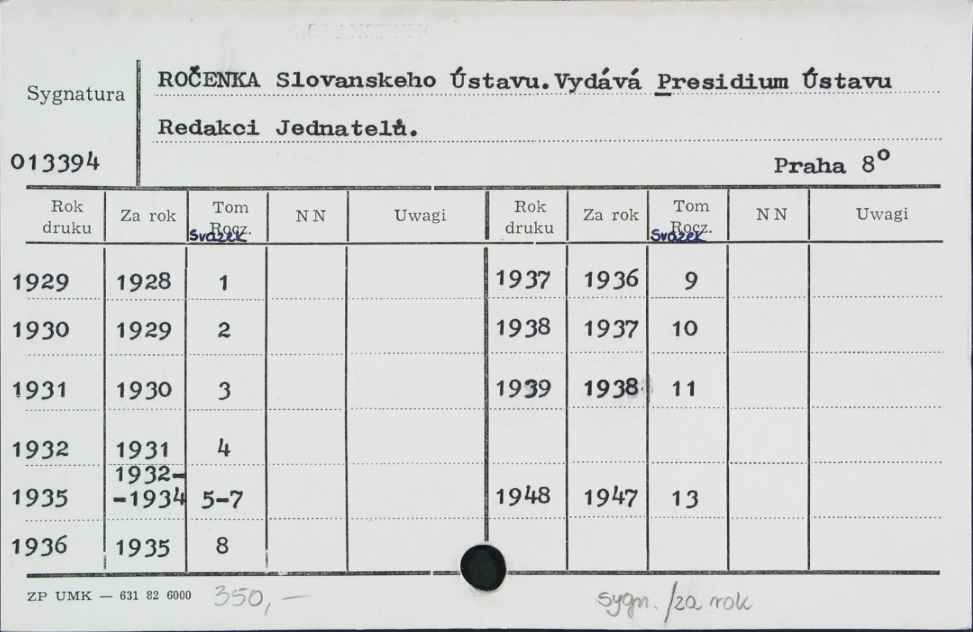 Sygnatura
ROČENKA Slovanskeho Ústavu. Vydává Presidium Ústavu
Redakci Jednatelů.
013394
Praha 8°
Rok druku Za rok Tom Rocz. Svazek NN Uwagi Rok druku Za rok Tom Rocz. Svazek NN Uwagi
1929 1928 1 1937 1936 9
1930 1929 2 1938 1937 10
1931 1930 3 1939 1938 11
1932 1931 4
1935 1932- -1934 5-7 1948 1947 13
1936 1935 8
ZP UMK — 631 82 6000 350,— sygn. /za rok